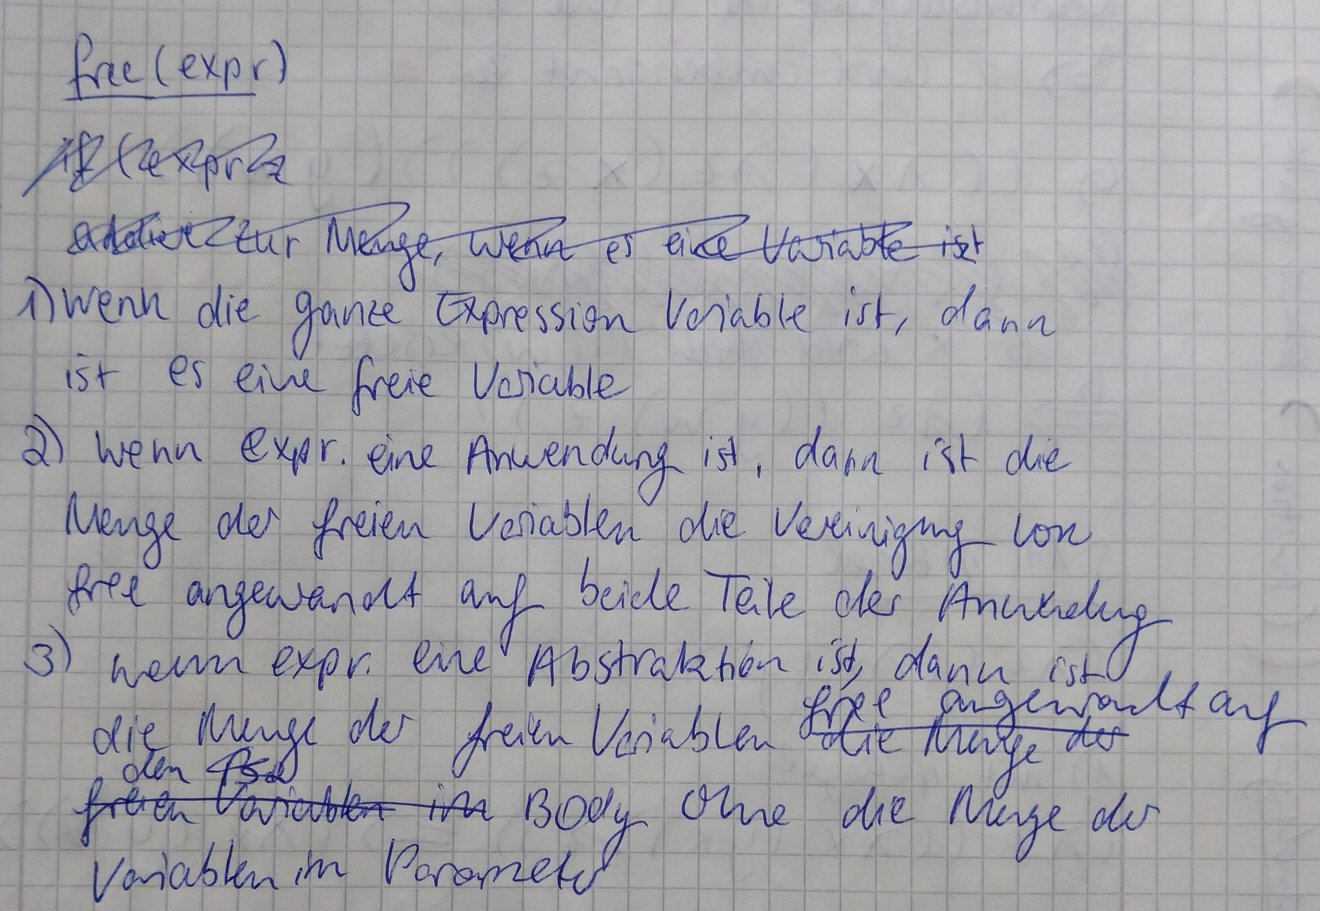 free(expr)
if (expr z
addiert zur Menge, wenn es eine Variable ist
1) wenn die ganze Expression Variable ist, dann
ist es eine freie Variable
2) wenn expr. eine Anwendung ist, dann ist die
Menge der freien Variablen die Vereinigung von
free angewandt auf beide Teile der Anwendung
3) wenn expr. eine Abstraktion ist, dann ist
free angewandt auf
die Menge der freien Variablen die Menge der
den
freien Variablen im Body ohne die Menge der
Variablen im Parameter